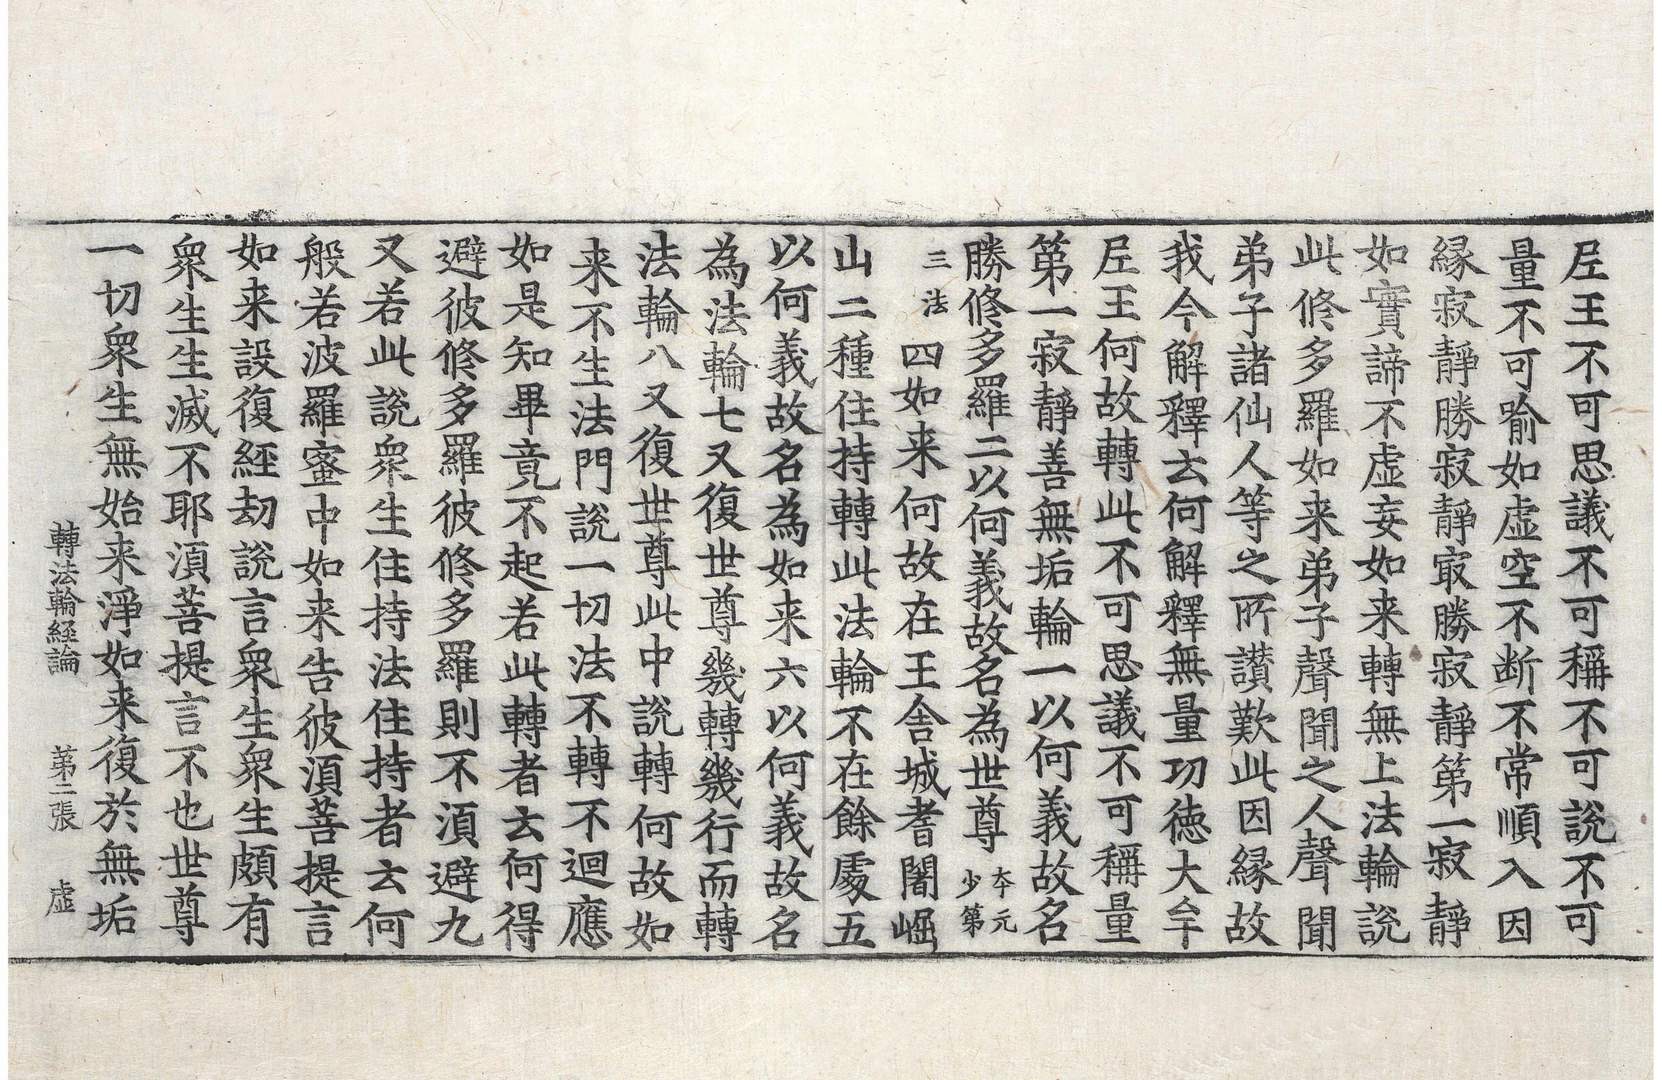 𡰱王不可思議不可稱不可說不可
量不可喻如虛空不断不常順入因
緣寂靜勝寂靜㝡勝寂靜第一寂靜
如實諦不虛妄如来轉無上法輪說
此修多羅如来弟子聲聞之人聲聞
弟子諸仙人等之所讃歎此因緣故
我今解釋云何解釋無量功徳大牟
𡰱王何故轉此不可思議不可稱量
第一寂靜善無垢輪一以何義故名
勝修多羅二以何義故名為世尊 夲元
少第
三法 四如来何故在王舍城耆闍崛
山二種住持轉此法輪不在餘處五
以何義故名為如来六以何義故名
為法輪七又復世尊幾轉幾行而轉
法輪八又復世尊此中說轉何故如
来不生法門說一切法不轉不迴應
如是知畢竟不起若此轉者云何得
避彼修多羅彼修多羅則不湏避九
又若此說眾生住持法住持者云何
般若波羅蜜中如来告彼湏菩提言
如来設復經劫說言眾生眾生頗有
眾生生滅不耶湏菩提言不也世尊
一切眾生無始来淨如来復於無垢
轉法輪経論 苐二張 虛